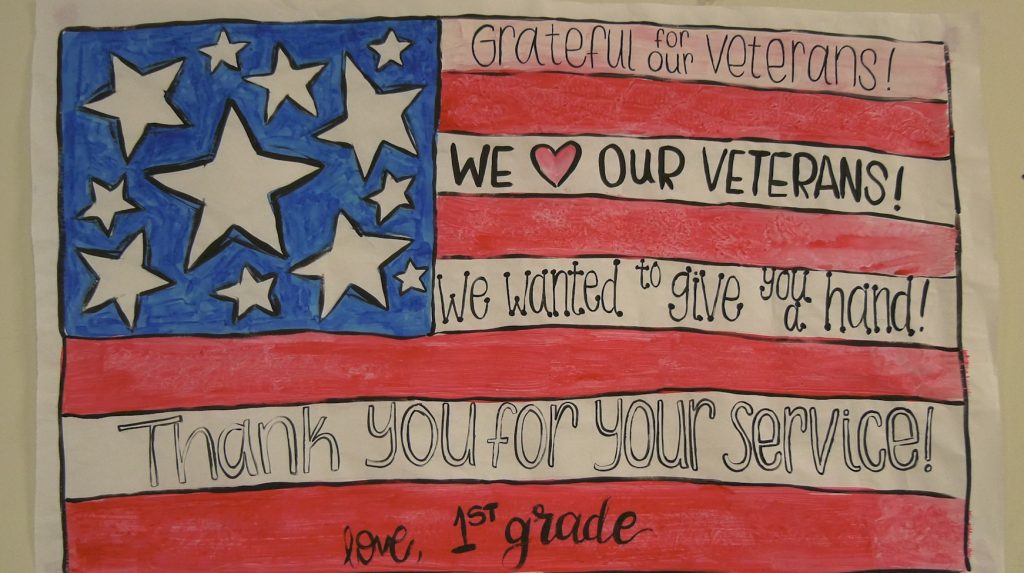 Grateful for our Veterans!
WE ❤ OUR VETERANS!
We wanted to give you a hand!
Thank you for your service!
love, 1ST grade